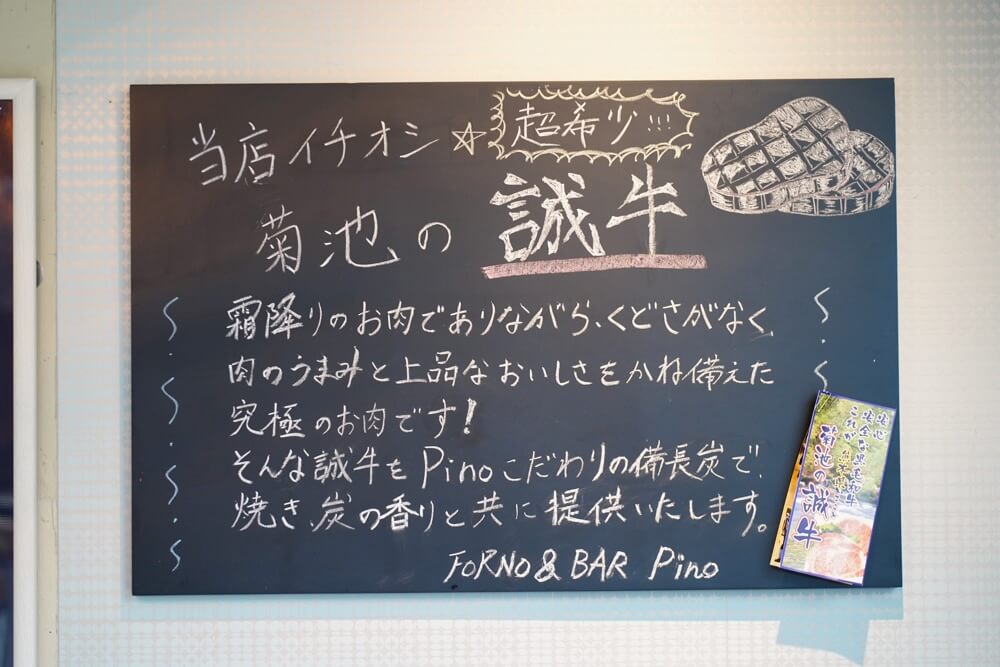 当店イチオシ☆ 超希少!!!
菊池の誠牛
霜降りのお肉でありながら、くどさがなく、
肉のうまみと上品なおいしさをかね備えた
究極のお肉です!
そんな誠牛をPinoこだわりの備長炭で、
焼き、炭の香りと共に提供いたします。
FORNO & BAR Pino
安心
安全な黒毛和牛
これが
菊池の誠牛